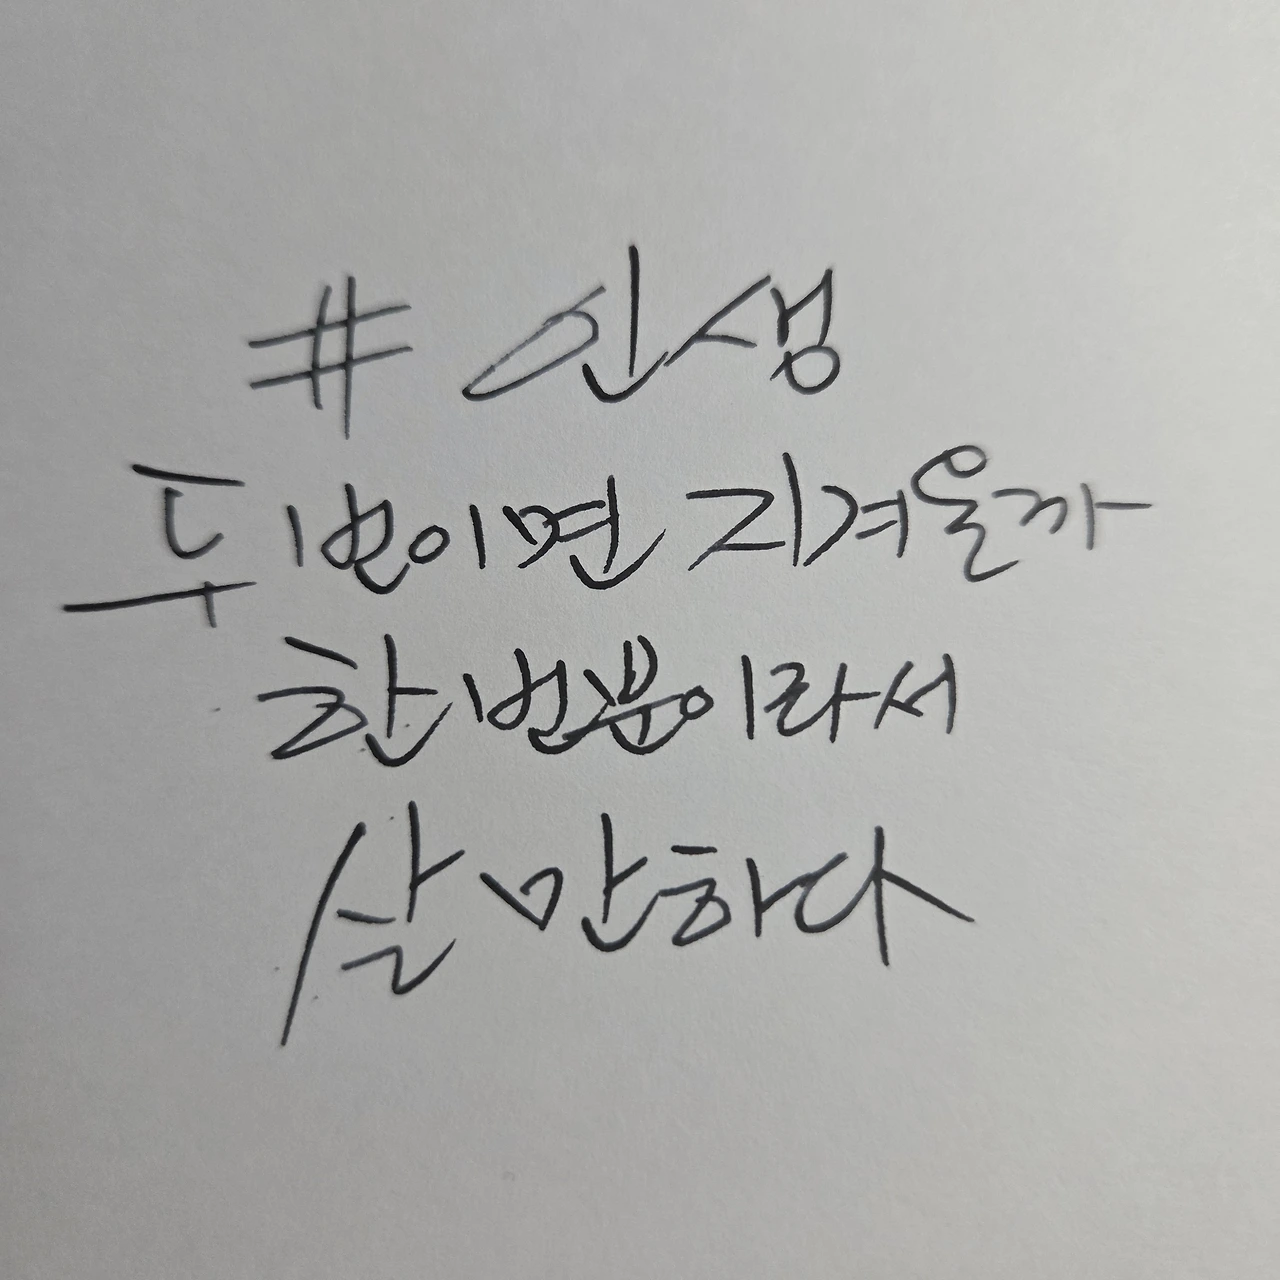 # 인생
두 번이면 지겨울까
한 번뿐이라서
살 만하다